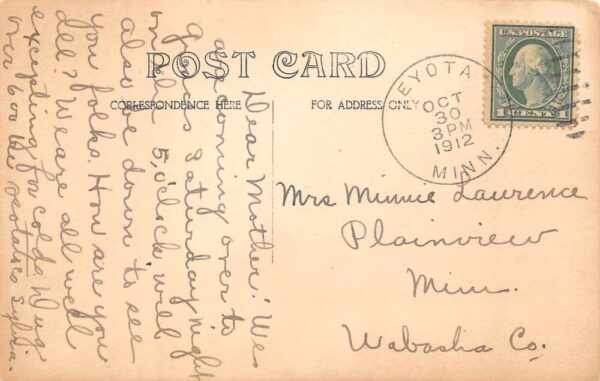 POST CARD
CORRESPONDENCE HERE
FOR ADDRESS ONLY
U.S. POSTAGE
1 CENT 1
EYOTA
OCT
30
3 PM
1912
MINN.
Mrs Minnie Laurence
Plainview
Minn.
Wabasha Co.
Dear Mother! We
are coming over to
Saturday night
on 5,oclock will
also be down to see
you folks. How are you
all? We are all well
excepting for colds. Dug
over 600 bu. potatoes Sylvia.